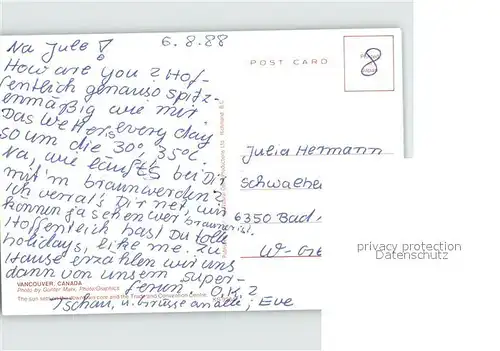 6.8.88
Na Jule!
How are you? Hof-
fentlich genauso spitz-
enmäßig wie mir.
Das Wetter is every day
so um die 30°, 35°C.
Na, wie läuft's bei Dir
mit'm braunwerden?
Ich verrat's Dir net, wir
können ja sehen wer brauner ist.
Hoffentlich hast Du tolle
holidays, like me. Zu
Hause erzählen wir uns
dann von unsern super-
ferien, O.K.?
Tschau, u. Grüsse an alle; Eve
VANCOUVER, CANADA
Photo by Gunter Marx, Photo/Graphics
The sun sets on the downtown core and the Trade and Convention Centre.
POST CARD
8
Julia Hermann
Schwalbe
6350 Bad
W-Ge
privacy protection
Datenschutz